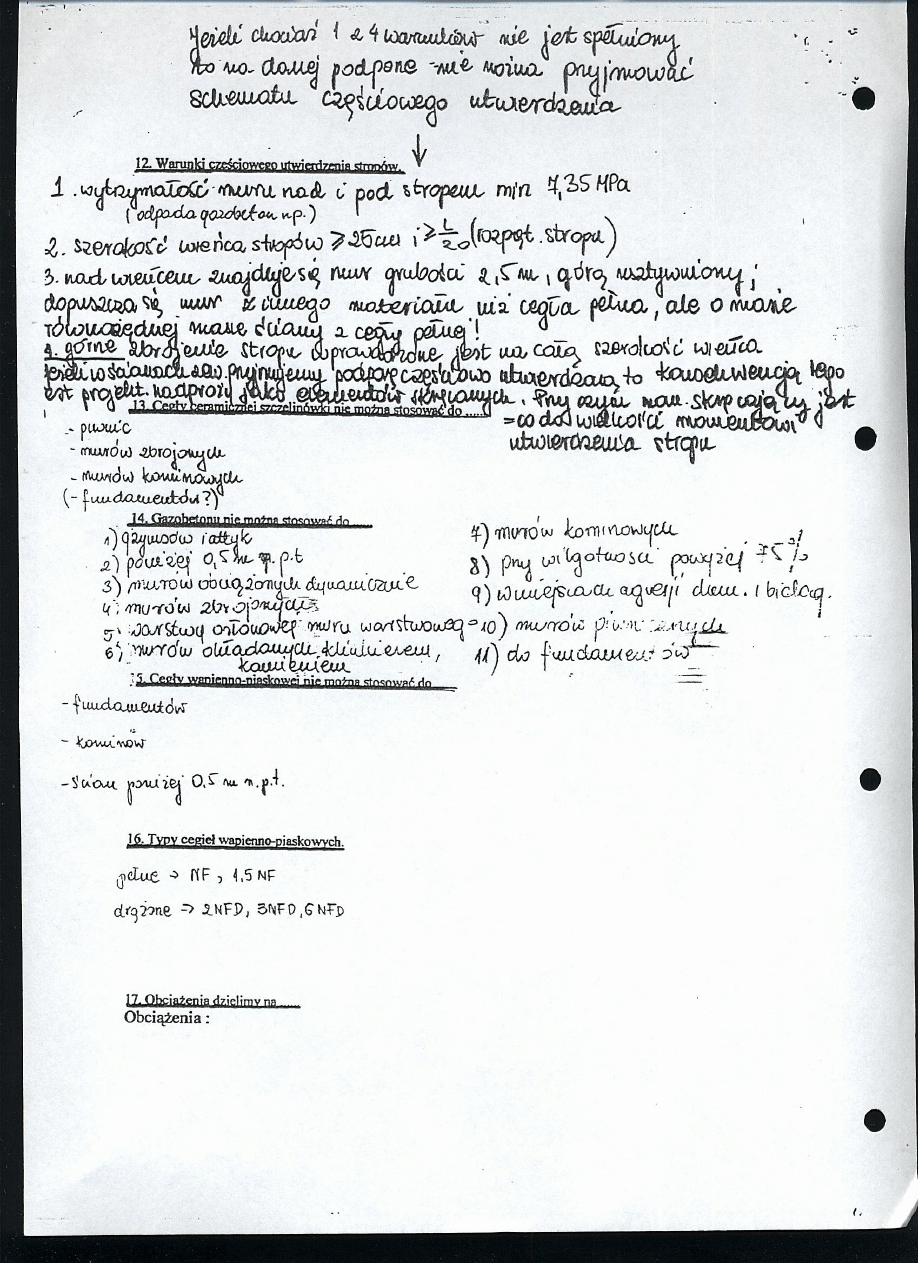 Jeżeli chociaż 1 z 4 warunków nie jest spełniony
to na danej podporze nie można przyjmować
schematu częściowego utwierdzenia
↓
12. Warunki częściowego utwierdzenia stropów.
1. wytrzymałość muru nad i pod stropem min 7,35 MPa
(odpada gazobeton np.)
2. szerokość wieńca stropów ≥ 25cm i ≥ L/20 (rozpęt. stropu)
3. nad wieńcem znajduje się mur grubości 2,5m, górą usztywniony;
dopuszcza się mur z innego materiału niż cegła pełna, ale o masie
równorzędnej masie ściany z cegły pełnej!
4. górne zbrojenie stropu doprowadzone jest na całą szerokość wieńca
Jeżeli w ścianach zew. przyjmujemy podporę częściowo utwierdzoną to konsekwencją tego
jest projekt. nadproży jako elementów skręcanych. Przy czym mom. skręcający jest
13. Cegły ceramicznej szczelinówki nie można stosować do ......
= co do wielkości momentowi
utwierdzenia stropu
- piwnic
- murów zbrojonych
- murów kominowych
(- fundamentów?)
14. Gazobetonu nie można stosować do
1) gzymsów i attyk
2) poniżej 0,5m p.p.t
3) murów obciążonych dynamicznie
4) murów zbrojonych
5) warstwy osłonowej muru warstwoweg=
6) murów okładanych klinkierem,
kamieniem
7) murów kominowych
8) przy wilgotności powyżej 75%
9) w miejscach agresji chem. i biolog.
10) murów piwnicznych
11) do fundamentów
15. Cegły wapienno-piaskowej nie można stosować do
- fundamentów
- kominów
- ścian poniżej 0,5 m n.p.t.
16. Typy cegieł wapienno-piaskowych.
pełne → NF, 1,5 NF
drążone ⇒ 2NFD, 3NFD, 6NFD
17. Obciążenia dzielimy na ......
Obciążenia :